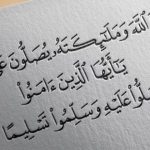 اللَّهَ وَمَلَٰٓئِكَتَهُۥ يُصَلُّونَ عَ
يَٰٓأَيُّهَا الَّذِينَ ءَامَنُوا۟
لُّوا۟ عَلَيْهِ وَسَلِّمُوا۟ تَسْلِيمًا